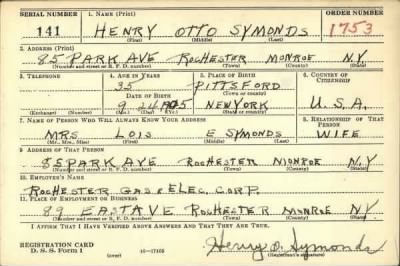 SERIAL NUMBER 1. NAME (Print) ORDER NUMBER
141 HENRY OTTO SYMONDS 1753
(First) (Middle) (Last)
2. ADDRESS (Print)
85 PARK AVE ROCHESTER MONROE N.Y
(Number and street or R. F. D. number) (Town) (County) (State)
3. TELEPHONE 4. AGE IN YEARS 5. PLACE OF BIRTH 6. COUNTRY OF CITIZENSHIP
35 PITTSFORD
DATE OF BIRTH (Town or county)
9 24 1905 NEW YORK U.S.A.
(Exchange) (Number) (Mo.) (Day) (Yr.) (State or country)
7. NAME OF PERSON WHO WILL ALWAYS KNOW YOUR ADDRESS 8. RELATIONSHIP OF THAT PERSON
MRS LOIS E SYMONDS WIFE
(Mr., Mrs., Miss) (First) (Middle) (Last)
9. ADDRESS OF THAT PERSON
85 PARK AVE ROCHESTER MONROE N.Y
(Number and street or R. F. D. number) (Town) (County) (State)
10. EMPLOYER'S NAME
ROCHESTER GAS & ELEC. CORP.
11. PLACE OF EMPLOYMENT OR BUSINESS
89 EAST AVE ROCHESTER MONROE N.Y
(Number and street or R. F. D. number) (Town) (County) (State)
I AFFIRM THAT I HAVE VERIFIED ABOVE ANSWERS AND THAT THEY ARE TRUE.
REGISTRATION CARD
D. S. S. Form 1 (over) 16-17105 Henry O. Symonds
(Registrant's signature)